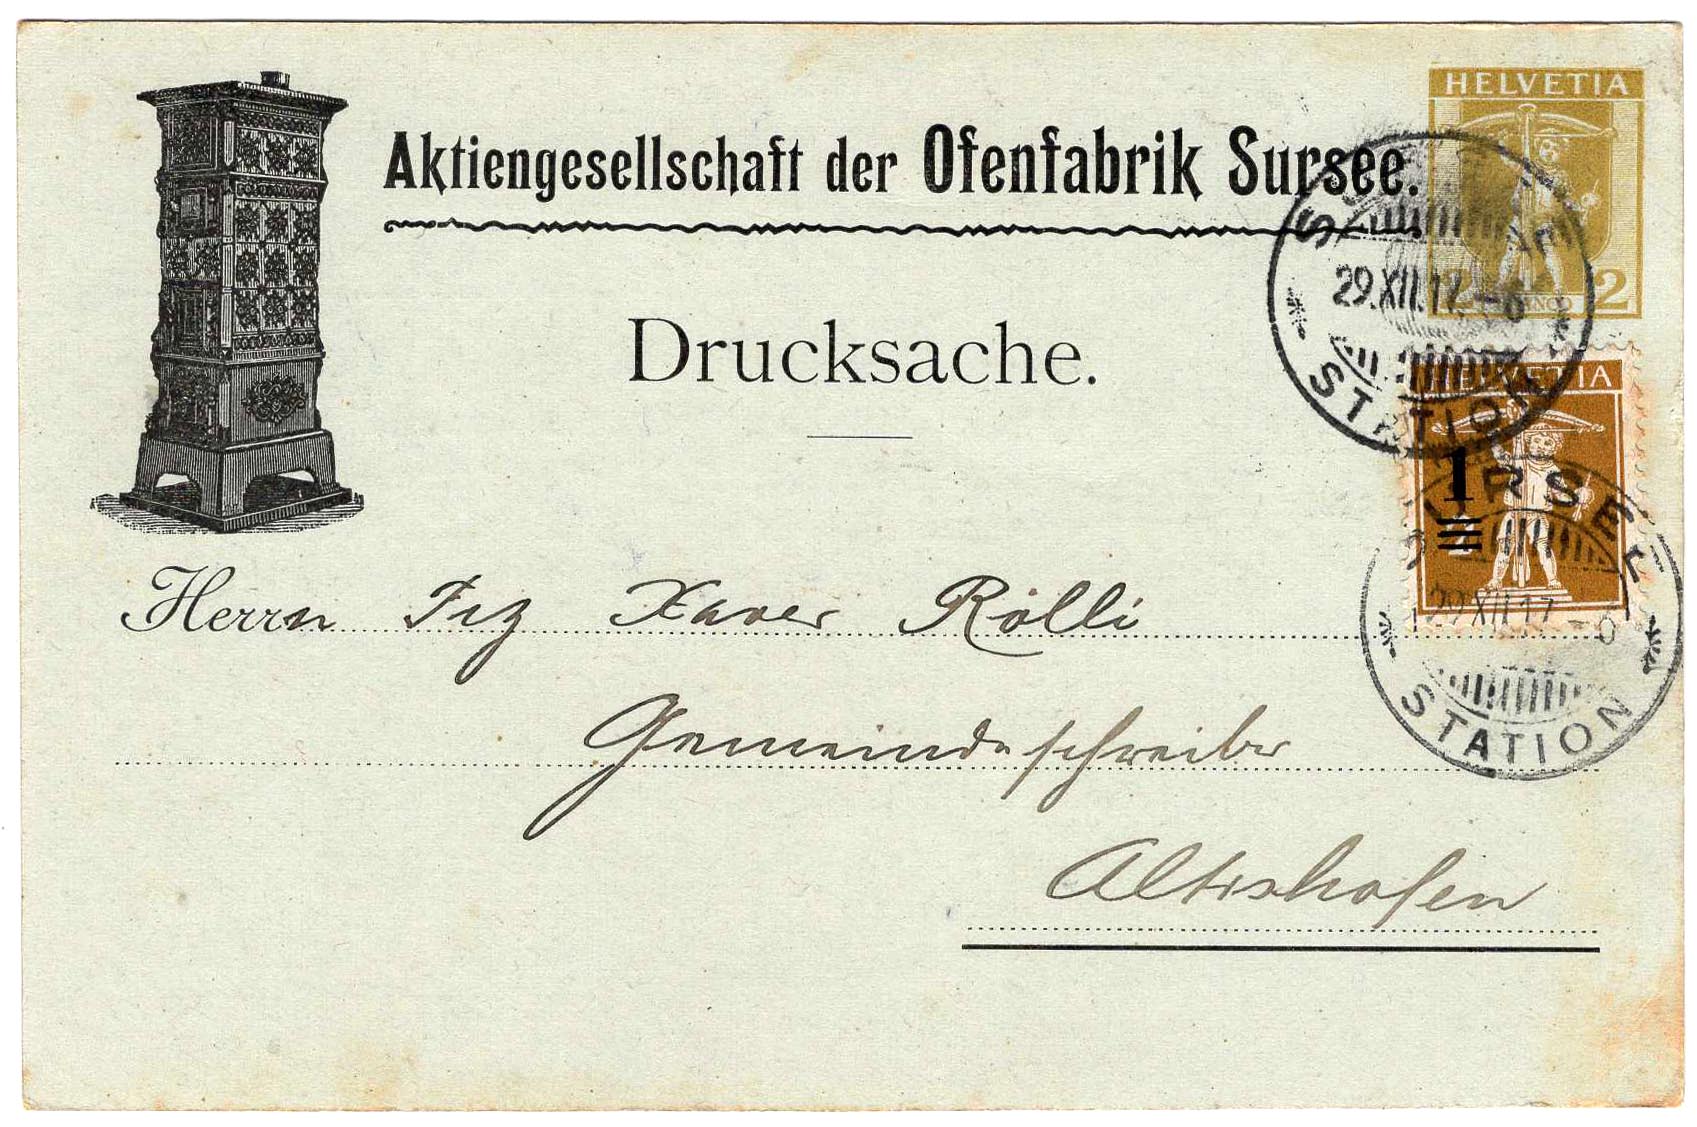 Aktiengesellschaft der Ofenfabrik Sursee.
HELVETIA
FRANCO 2
Drucksache.
SURSEE
29.XII.17.-6
STATION
HELVETIA
1
SURSEE
29.XII.17.-6
STATION
Herrn Frz Xaver Rölli
Gemeindeschreiber
Altishofen